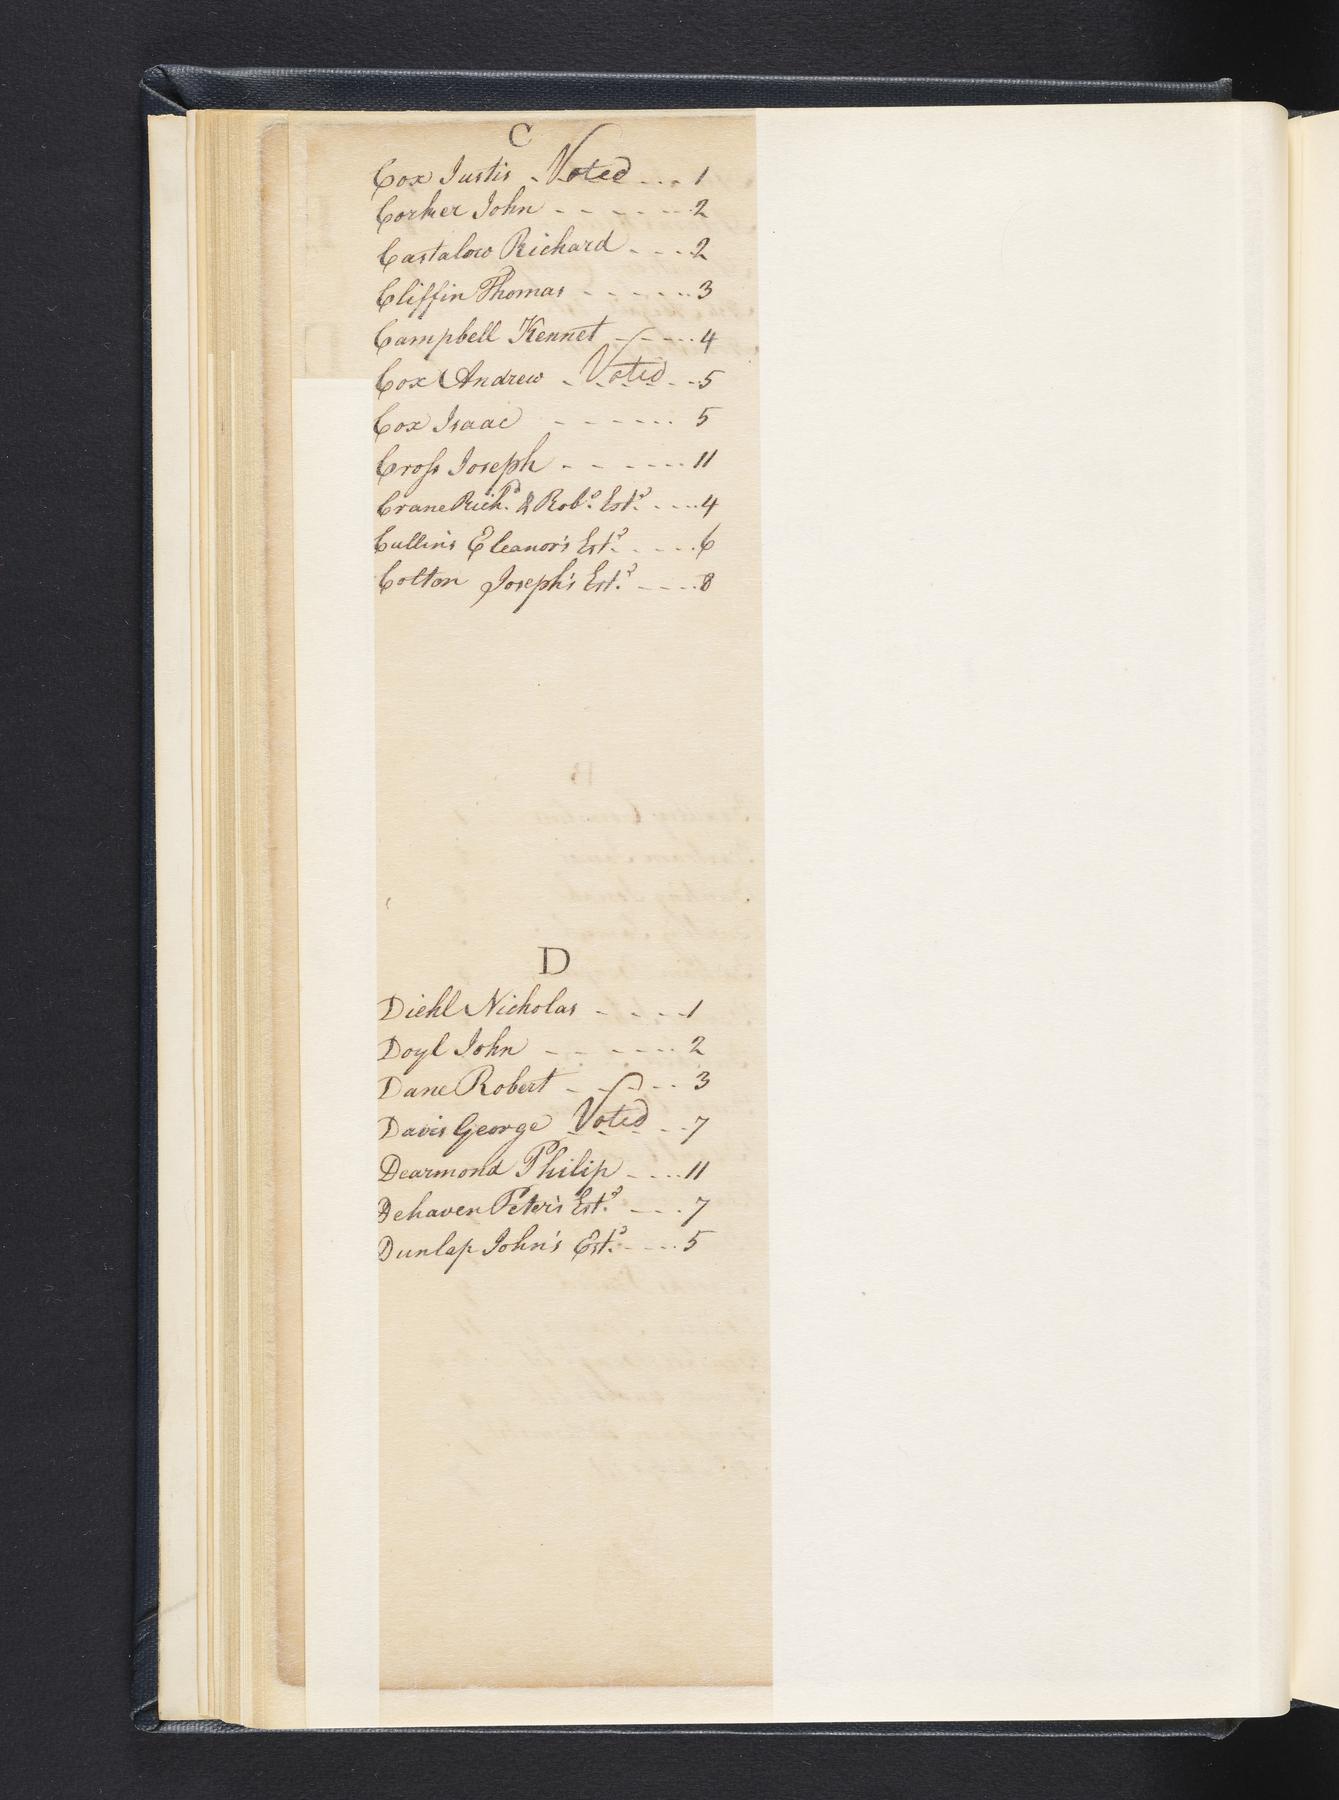 C
Cox Justis - Voted - - - 1
Corker John - - - - - - 2
Castalow Richard - - - 2
Cliffin Thomas - - - - - - 3
Campbell Kennet - - - - 4
Cox Andrew - Voted - - 5
Cox Isaac - - - - - - 5
Cross Joseph - - - - - - 11
Crane Rich.d & Rob.s Est.s - - - - 4
Cullin's Eleanor's Est.s - - - - 6
Colton Joseph's Est.s - - - - 8
D
Diehl Nicholas - - - - 1
Doyl John - - - - - - 2
Dane Robert - - - - 3
Davis George Voted - - 7
Dearmond Philip - - - - 11
Dehaven Peter's Est.s - - - - 7
Dunlap John's Est.s - - - - 5